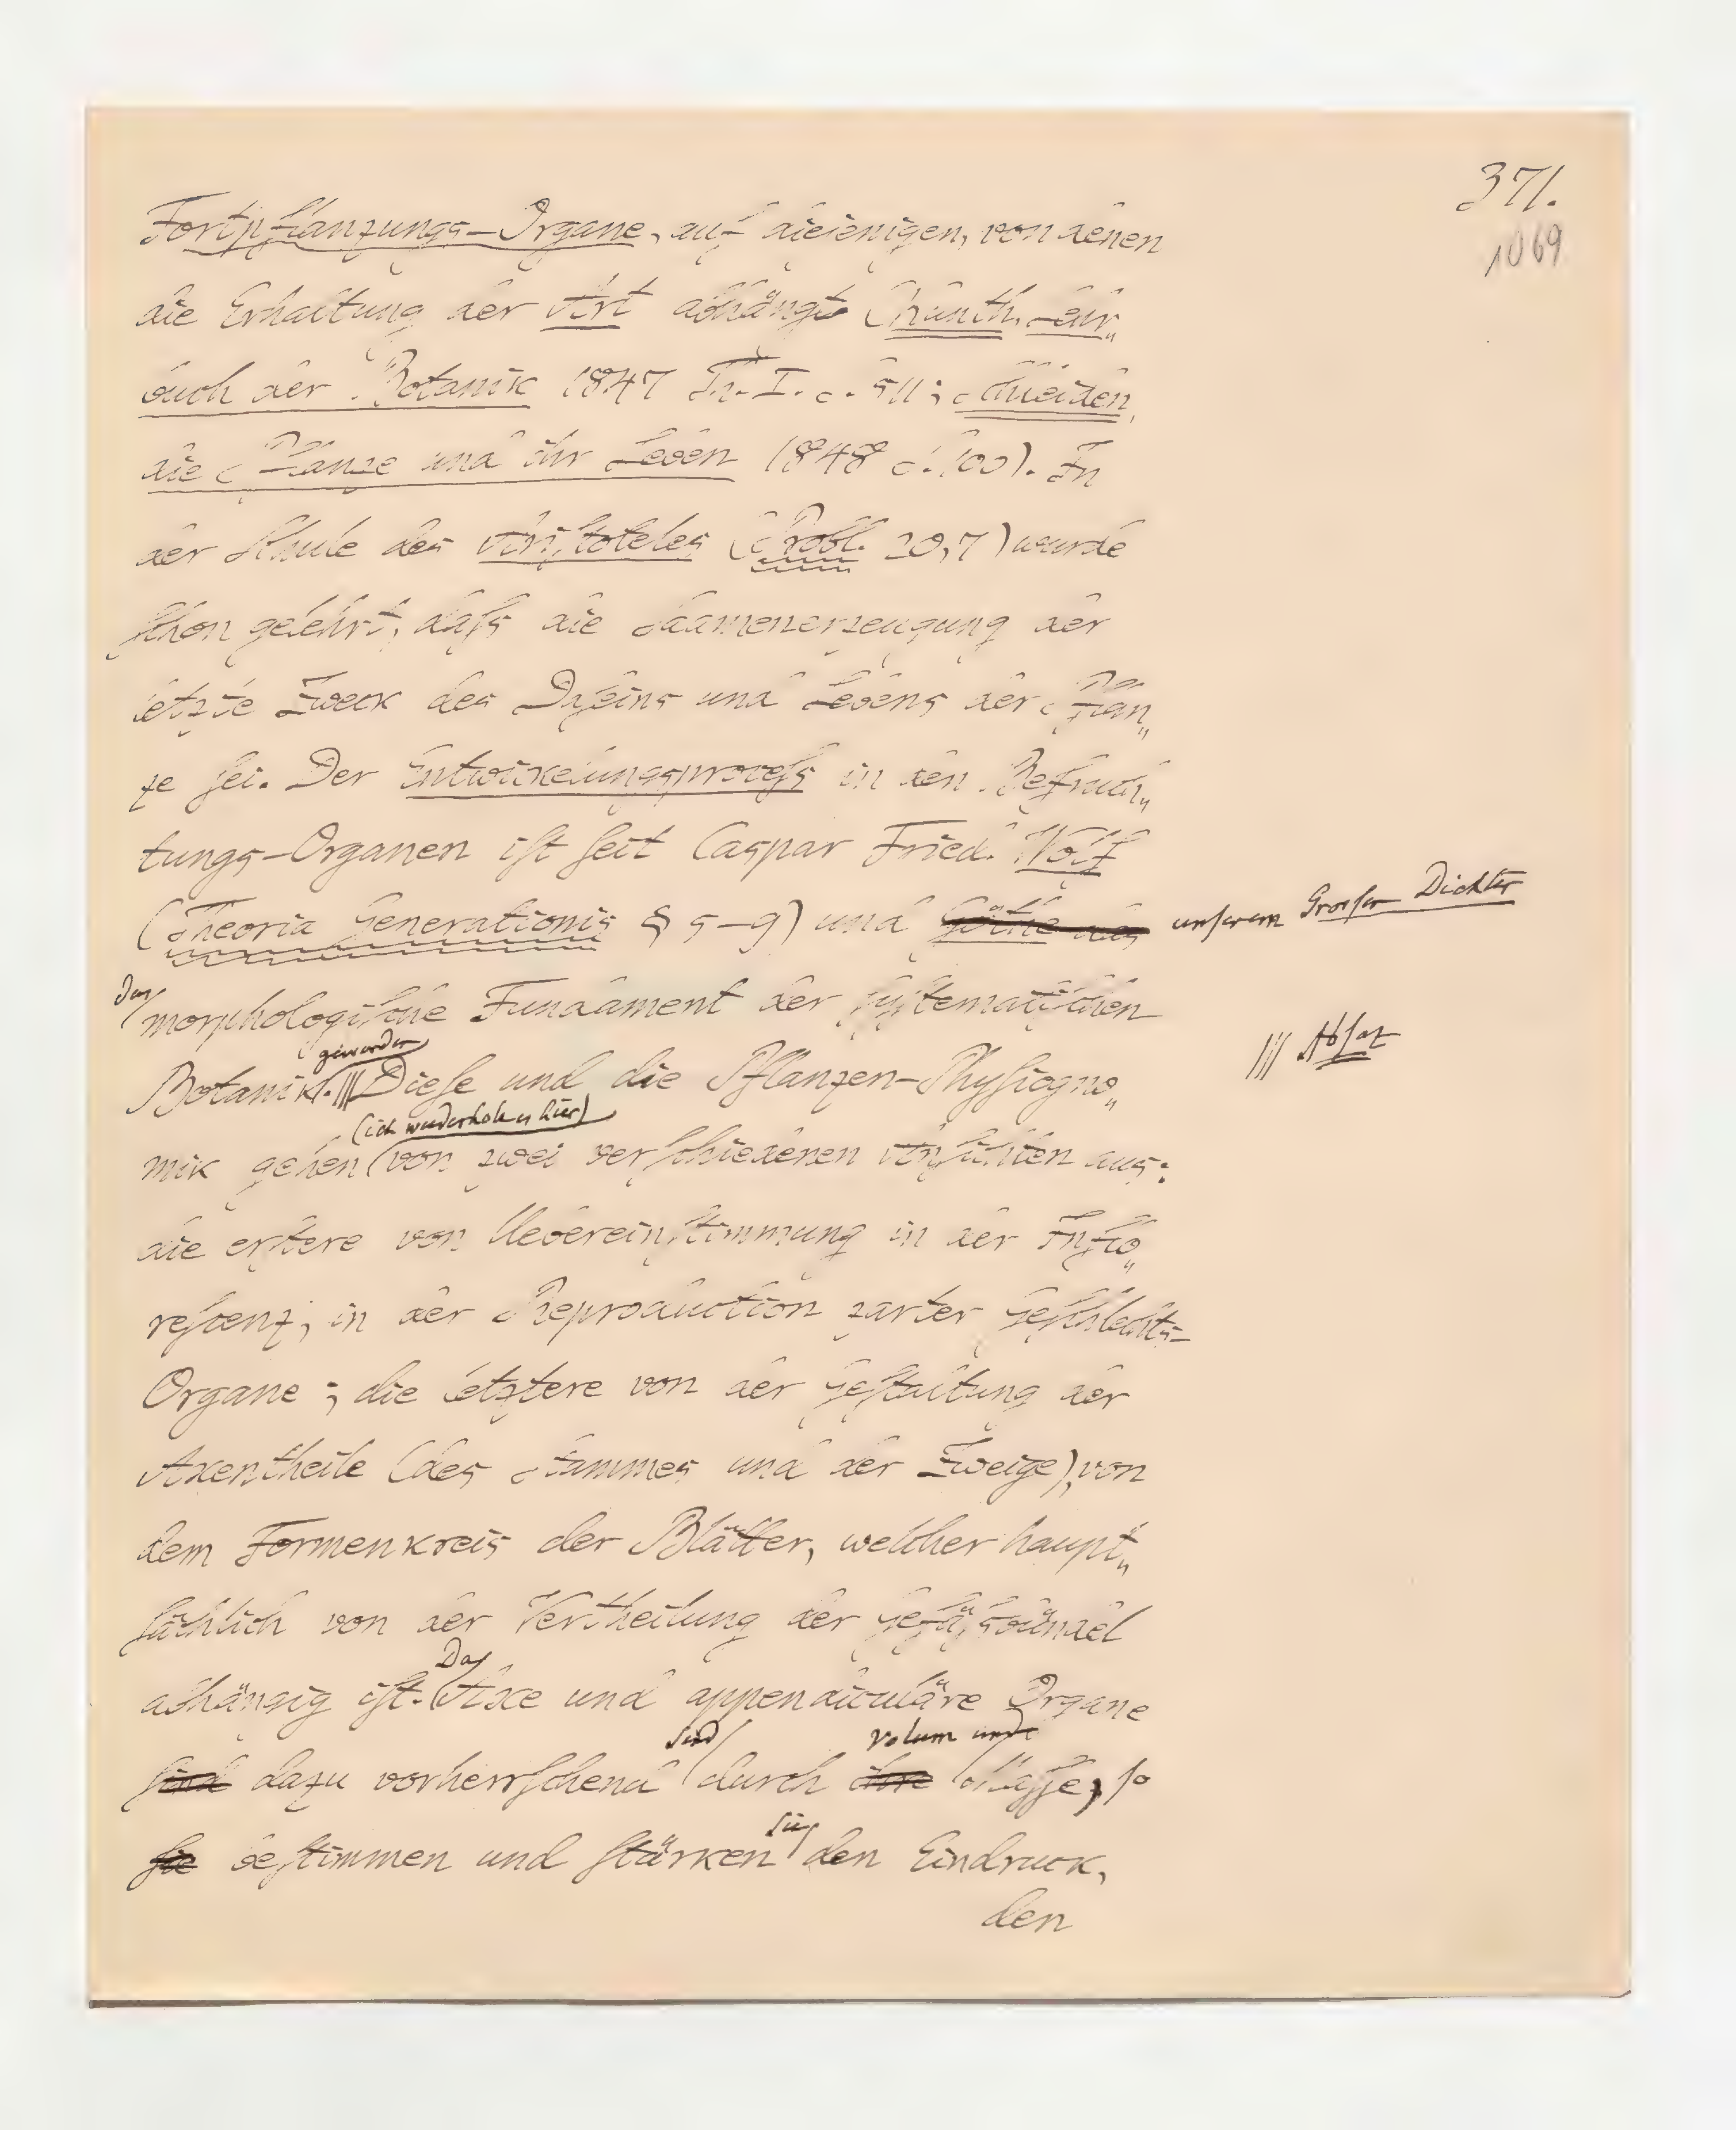 371.
1069
Fortpflanzungs-Organe, auf diejenigen, von denen
die Erhaltung der Art abhängt (Kunth, Lehr„
buch der Botanik 1847 Th. I. S. 511; Schleiden,
die Pflanze und ihr Leben 1848 S. 100). In
der Schule des Aristoteles (Probl. 20,7) wurde
schon gelehrt, dass die Saamenerzeugung der
letzte Zweck des Daseins und Lebens der Pflan„
ze sei. Der Entwickelungsprocess in den Befruch„
tungs-Organen ist seit Caspar Fried. Wolf
(Theoria Generationis § 5–9) und Göthe das unserem Grossen Dichter
das
morphologische Fundament der systematischen
geworden
Botanik. ||| Diese und die Pflanzen-Physiogno„ ||| Absaz
(ich wiederhole es hier)
mik gehen von zwei verschiedenen Ansichten aus:
die erstere von Uebereinstimmung in der Inflo„
rescenz, in der Reproduction zarter Geschlechts-
Organe; die letztere von der Gestaltung der
Axentheile (des Stammes und der Zweige), von
dem Formenkreis der Blätter, welcher haupt„
sächlich von der Vertheilung der Gefässbündel
Da
abhängig ist. Axe und appendiculäre Organe
sind Volum und
sind dazu vorherrschend durch ihre Masse, so
sie
sie bestimmen und stärken den Eindruck,
den